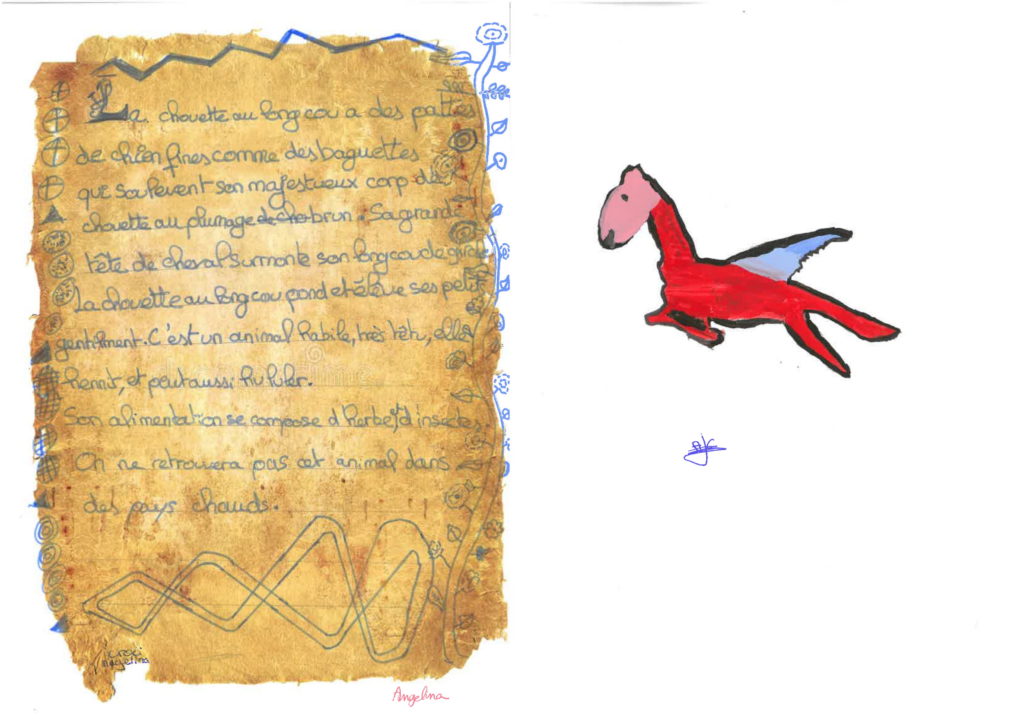 La chouette au long cou a des pattes
de chien fines comme des baguettes
qui soulèvent son majestueux corp de
chouette au plumage de che brun. Sa grande
tête de cheval surmonte son long cou de girafe
La chouette au long cou pond et élève ses petit
gentilment. C'est un animal habile, très têtu, elle
hennit, et peut aussi hululer.
Son alimentation se compose d'herbe, d'insectes
On ne retrouvera pas cet animal dans
des pays chauds.
Angelina